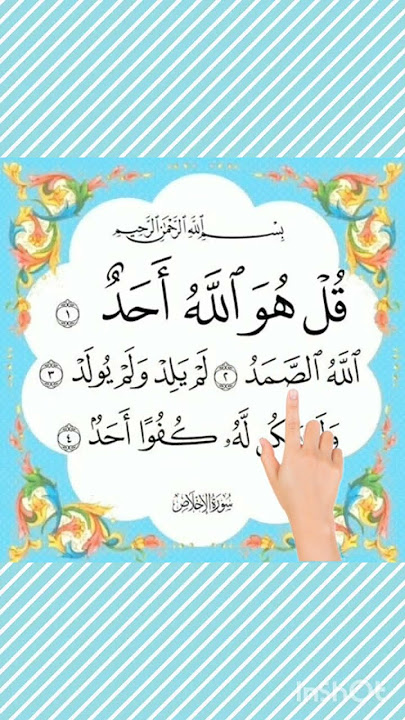 بِسْمِ ٱللَّهِ ٱلرَّحْمَٰنِ ٱلرَّحِيمِ
قُلْ هُوَ ٱللَّهُ أَحَدٌ ١
ٱللَّهُ ٱلصَّمَدُ ٢ لَمْ يَلِدْ وَلَمْ يُولَدْ ٣
لَّهُۥ كُفُوًا أَحَدٌۢ ٤
سُورَةُ الإِخْلَاصِ
InShOt